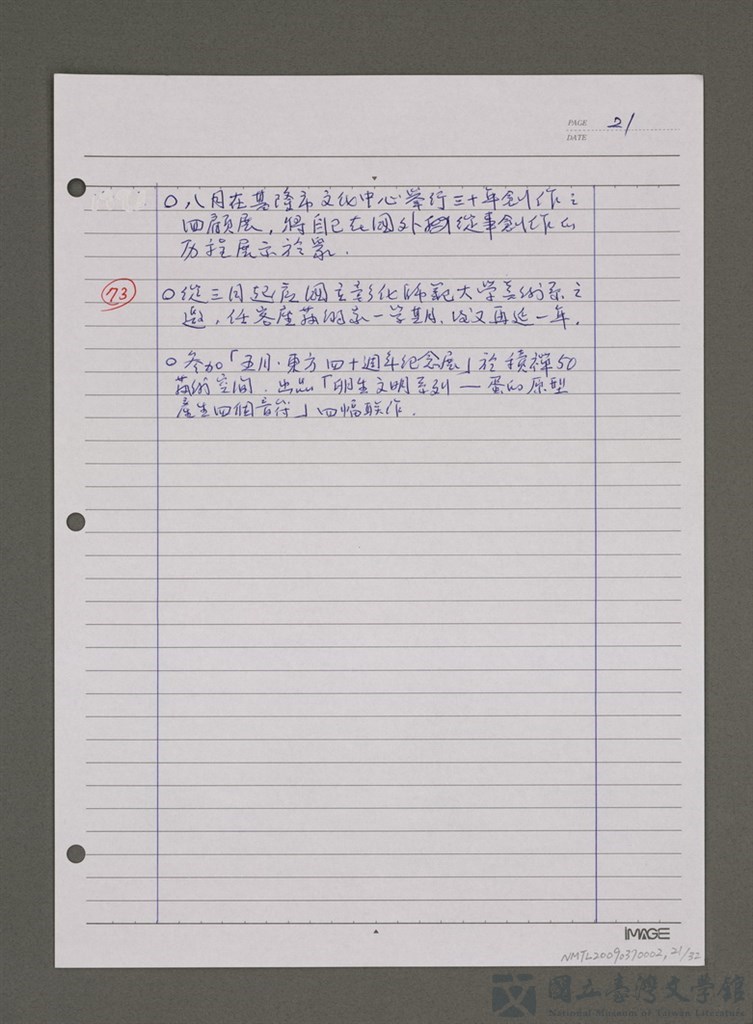 PAGE 21
DATE
○八月在基隆市文化中心舉行三十年創作之
回顧展，將自己在國外從事創作的
历程展示於眾.
73
○從三月起应國立彰化師範大学美術系之
邀，任客座藝術家一学期，後又再延一年.
○参加「五月·東方四十週年纪念展」於積禪50
藝術空間.出品「明生文明系列—蛋的原型
產生四個音符」四幅联作.
IMAGE
NMTL20090370002, 21/32
國立臺灣文學館
National Museum of Taiwan Literature